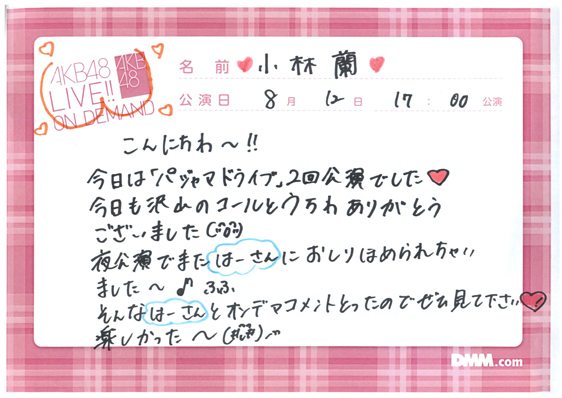 AKB48
LIVE!!
ON DEMAND
AKB
48
名前 小林 蘭
公演日 8月 12日 17:00公演
こんにちわ〜!!
今日は「パジャマドライブ」2回公演でした
今日も沢山のコールとウちわありがとう
ございました
夜公演でまたはーさんにおしりほめられちゃい
ました〜♪ふふ
そんなはーさんとオンデマコメントとったのでぜひ見て下さい
楽しかった〜
DMM.com